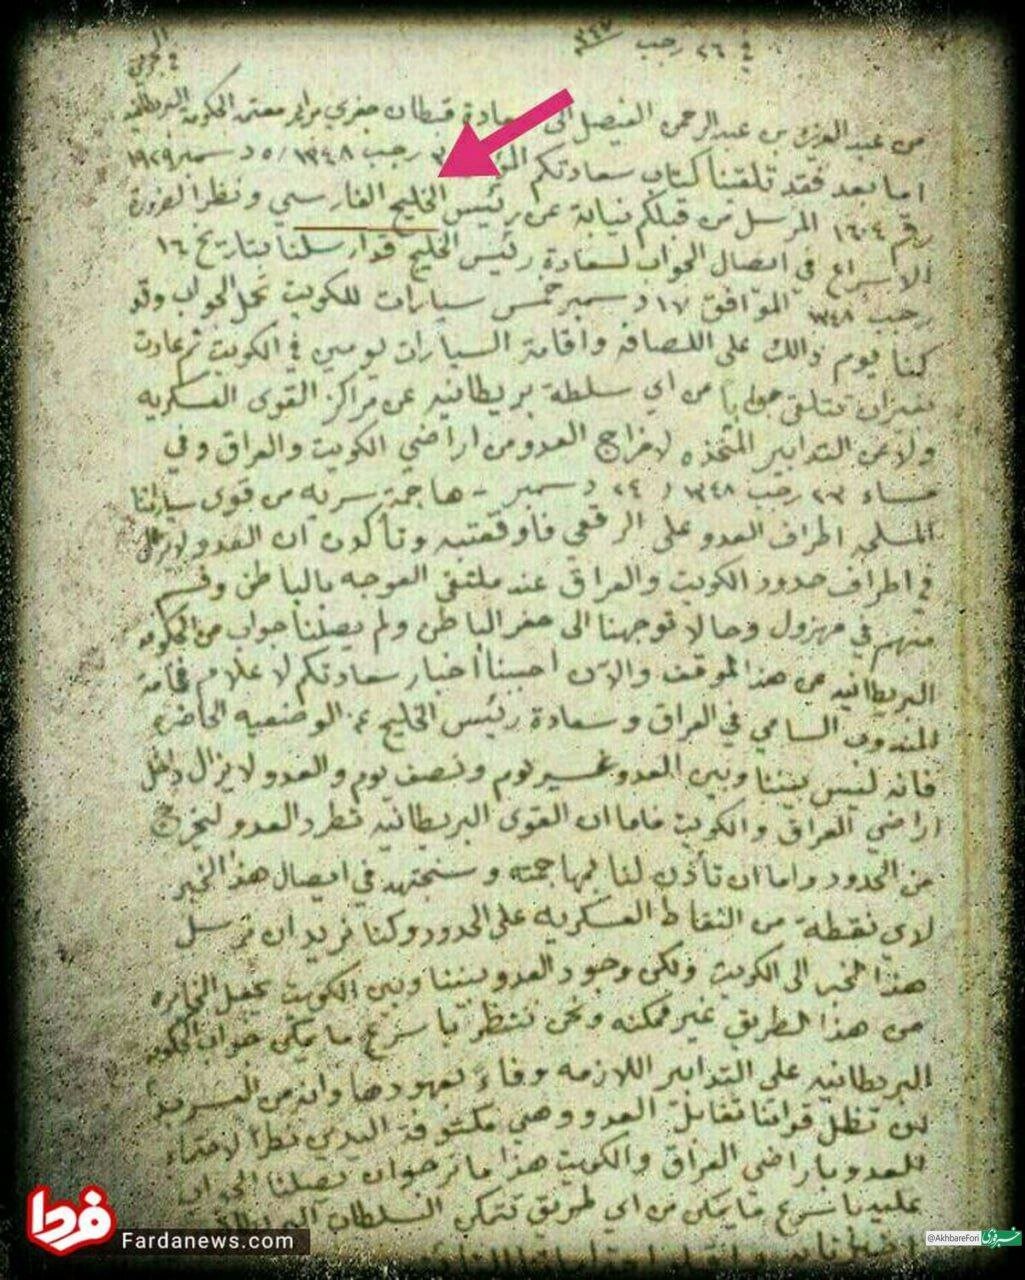 في ٢٦ رجب ١٣٤٨
من عبد العزيز بن عبد الرحمن الفيصل الى سعادة قبطان معتمد الحكومة البريطانية
اما بعد فقد تلقينا كتاب سعادتكم رجب ١٣٤٨ / ٥ دسمبر ١٩٢٩
رقم ١٦٠٤ المرسل من قبلكم نيابة عن رئيس الخليج الفارسي ونظرا لضرورة
الاسراع في ايصال الجواب لسعادة رئيس الخليج قد ارسلنا بتاريخ ١٦
رجب ١٣٤٨ الموافق ١٧ دسمبر خمس سيارات للكويت تحمل الجواب وقد
كنا يوم ذالك على اللصافه واقامة السيارات يومين في الكويت ثم عادت
بغير ان تتلقى جوابا من اي سلطة بريطانيه عن مراكز القوى العسكريه
ولا عن التدابير المتخذه لاخراج العدو من اراضي الكويت والعراق وفي
مساء ٢٣ رجب ١٣٤٨ / ٢٤ دسمبر - هاجمة سريه من قوى سياراتنا
المسلحه اطراف العدو على الرقعي وتأكدن ان العدو لا يزال
في اطراف حدود الكويت والعراق عند ملتقى العوجه بالباطن وقسم
منهم في مهزول وحالا توجهنا الى حفر الباطن ولم يصلنا جواب من الحكومه
البريطانيه عن هذا الموقف والآن احببنا اخبار سعادتكم لاعلام فخامة
المندوب السامي في العراق وسعادة رئيس الخليج عن الوضعيه الحاضره
فانه ليس بيننا وبين العدو غير يوم ونصف يوم والعدو لا يزال داخل
اراضي العراق والكويت فاما ان القوى البريطانيه تطرد العدو ليخرج
من الحدود واما ان تأذن لنا بمهاجمته وسنجتهد في ايصال هذا الخبر
لاي نقطة من النقاط العسكريه على الحدود وكنا نريد ان نرسل
هذا الخبر الى الكويت ولكن وجود العدو بيننا وبين الكويت يجعل المخابره
من هذا الطريق غير ممكنه ونحن ننتظر باسرع ما يمكن جواب الحكومه
البريطانيه على التدابير اللازمه وفاءً بعهودها وانه من الغريب
ان تظل قواتنا تقابل العدو وهي مكتوفة اليدي نظرا لاحتماء
العدو باراضي العراق والكويت هذا ما نرجو ان يصلنا الجواب
عليه باسرع ما يمكن من اي طريق
فردا
Fardanews.com
خبرفوری
@AkhbareFori